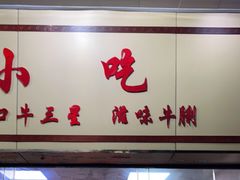 小吃
口牛三星 滑味牛𦟌